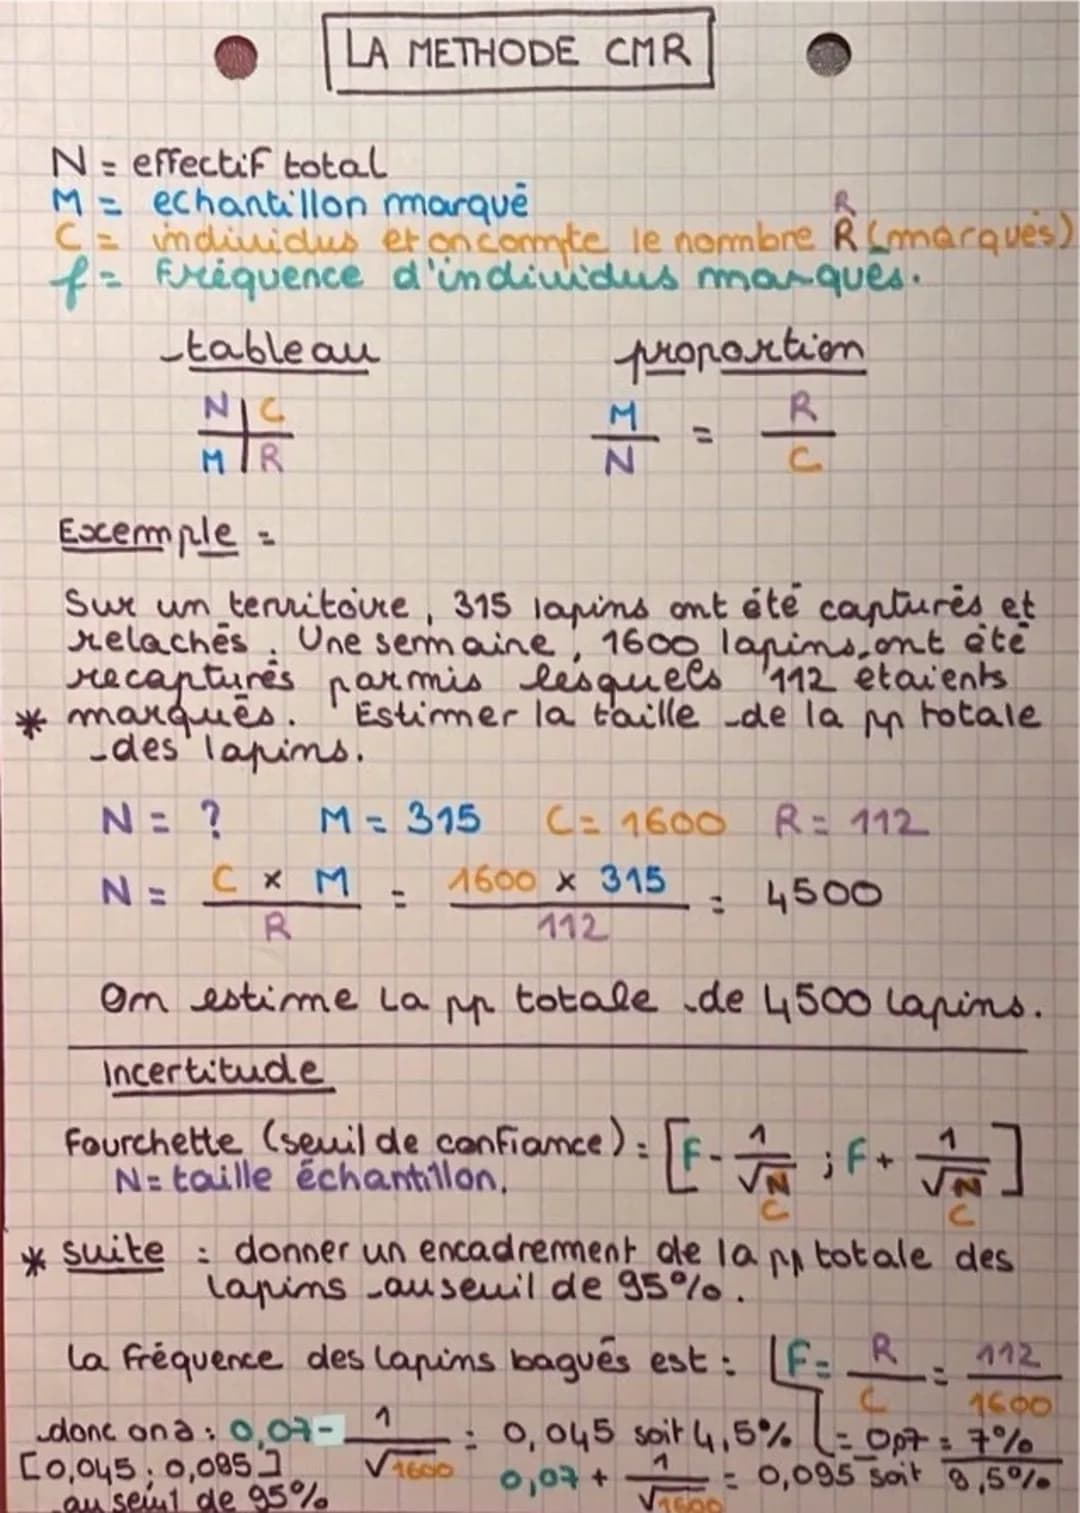 LA METHODE CMR
N = effectif total
M = echantillon marqué
C = individus et on compte le nombre R (marqués)
R
f = Fréquence d'individus marqués.
tableau
N | C
M | R
proportion
M/N = R/C
Exemple =
Sur un territoire, 315 lapins ont été capturés et
relachés. Une semaine, 1600 lapins, ont été
recapturés parmis lesquels 112 etaients
* marqués. Estimer la taille de la pp totale
des lapins.
N = ? M = 315 C = 1600 R = 112
N = C × M / R = 1600 × 315 / 112 = 4500
On estime la pp totale de 4500 lapins.
Incertitude
Fourchette (seuil de confiance) = [F - 1/√N ; F + 1/√N]
C C
N = taille échantillon.
* suite : donner un encadrement de la pp totale des
lapins au seuil de 95%.
la Fréquence des lapins bagués est : F = R/C = 112/1600
= 0,07 = 7%
donc on a : 0,07 - 1/√1600 = 0,045 soit 4,5%
0,07 + 1/√1600 = 0,095 soit 9,5%
[0,045 ; 0,095]
au seuil de 95%